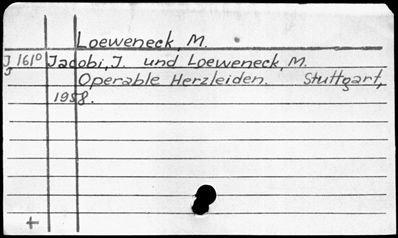 Loeweneck, M.
J 161⁰ Jacobi, J. und Loeweneck, M.
J Operable Herzleiden. Stuttgart,
1958.
+